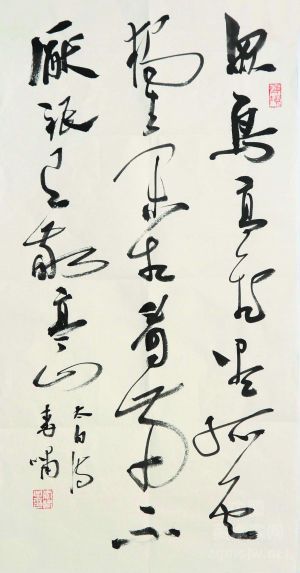 眾鳥高飛盡孤雲
獨去閑相看兩不
厭祇有敬亭山
太白詩
春嘯